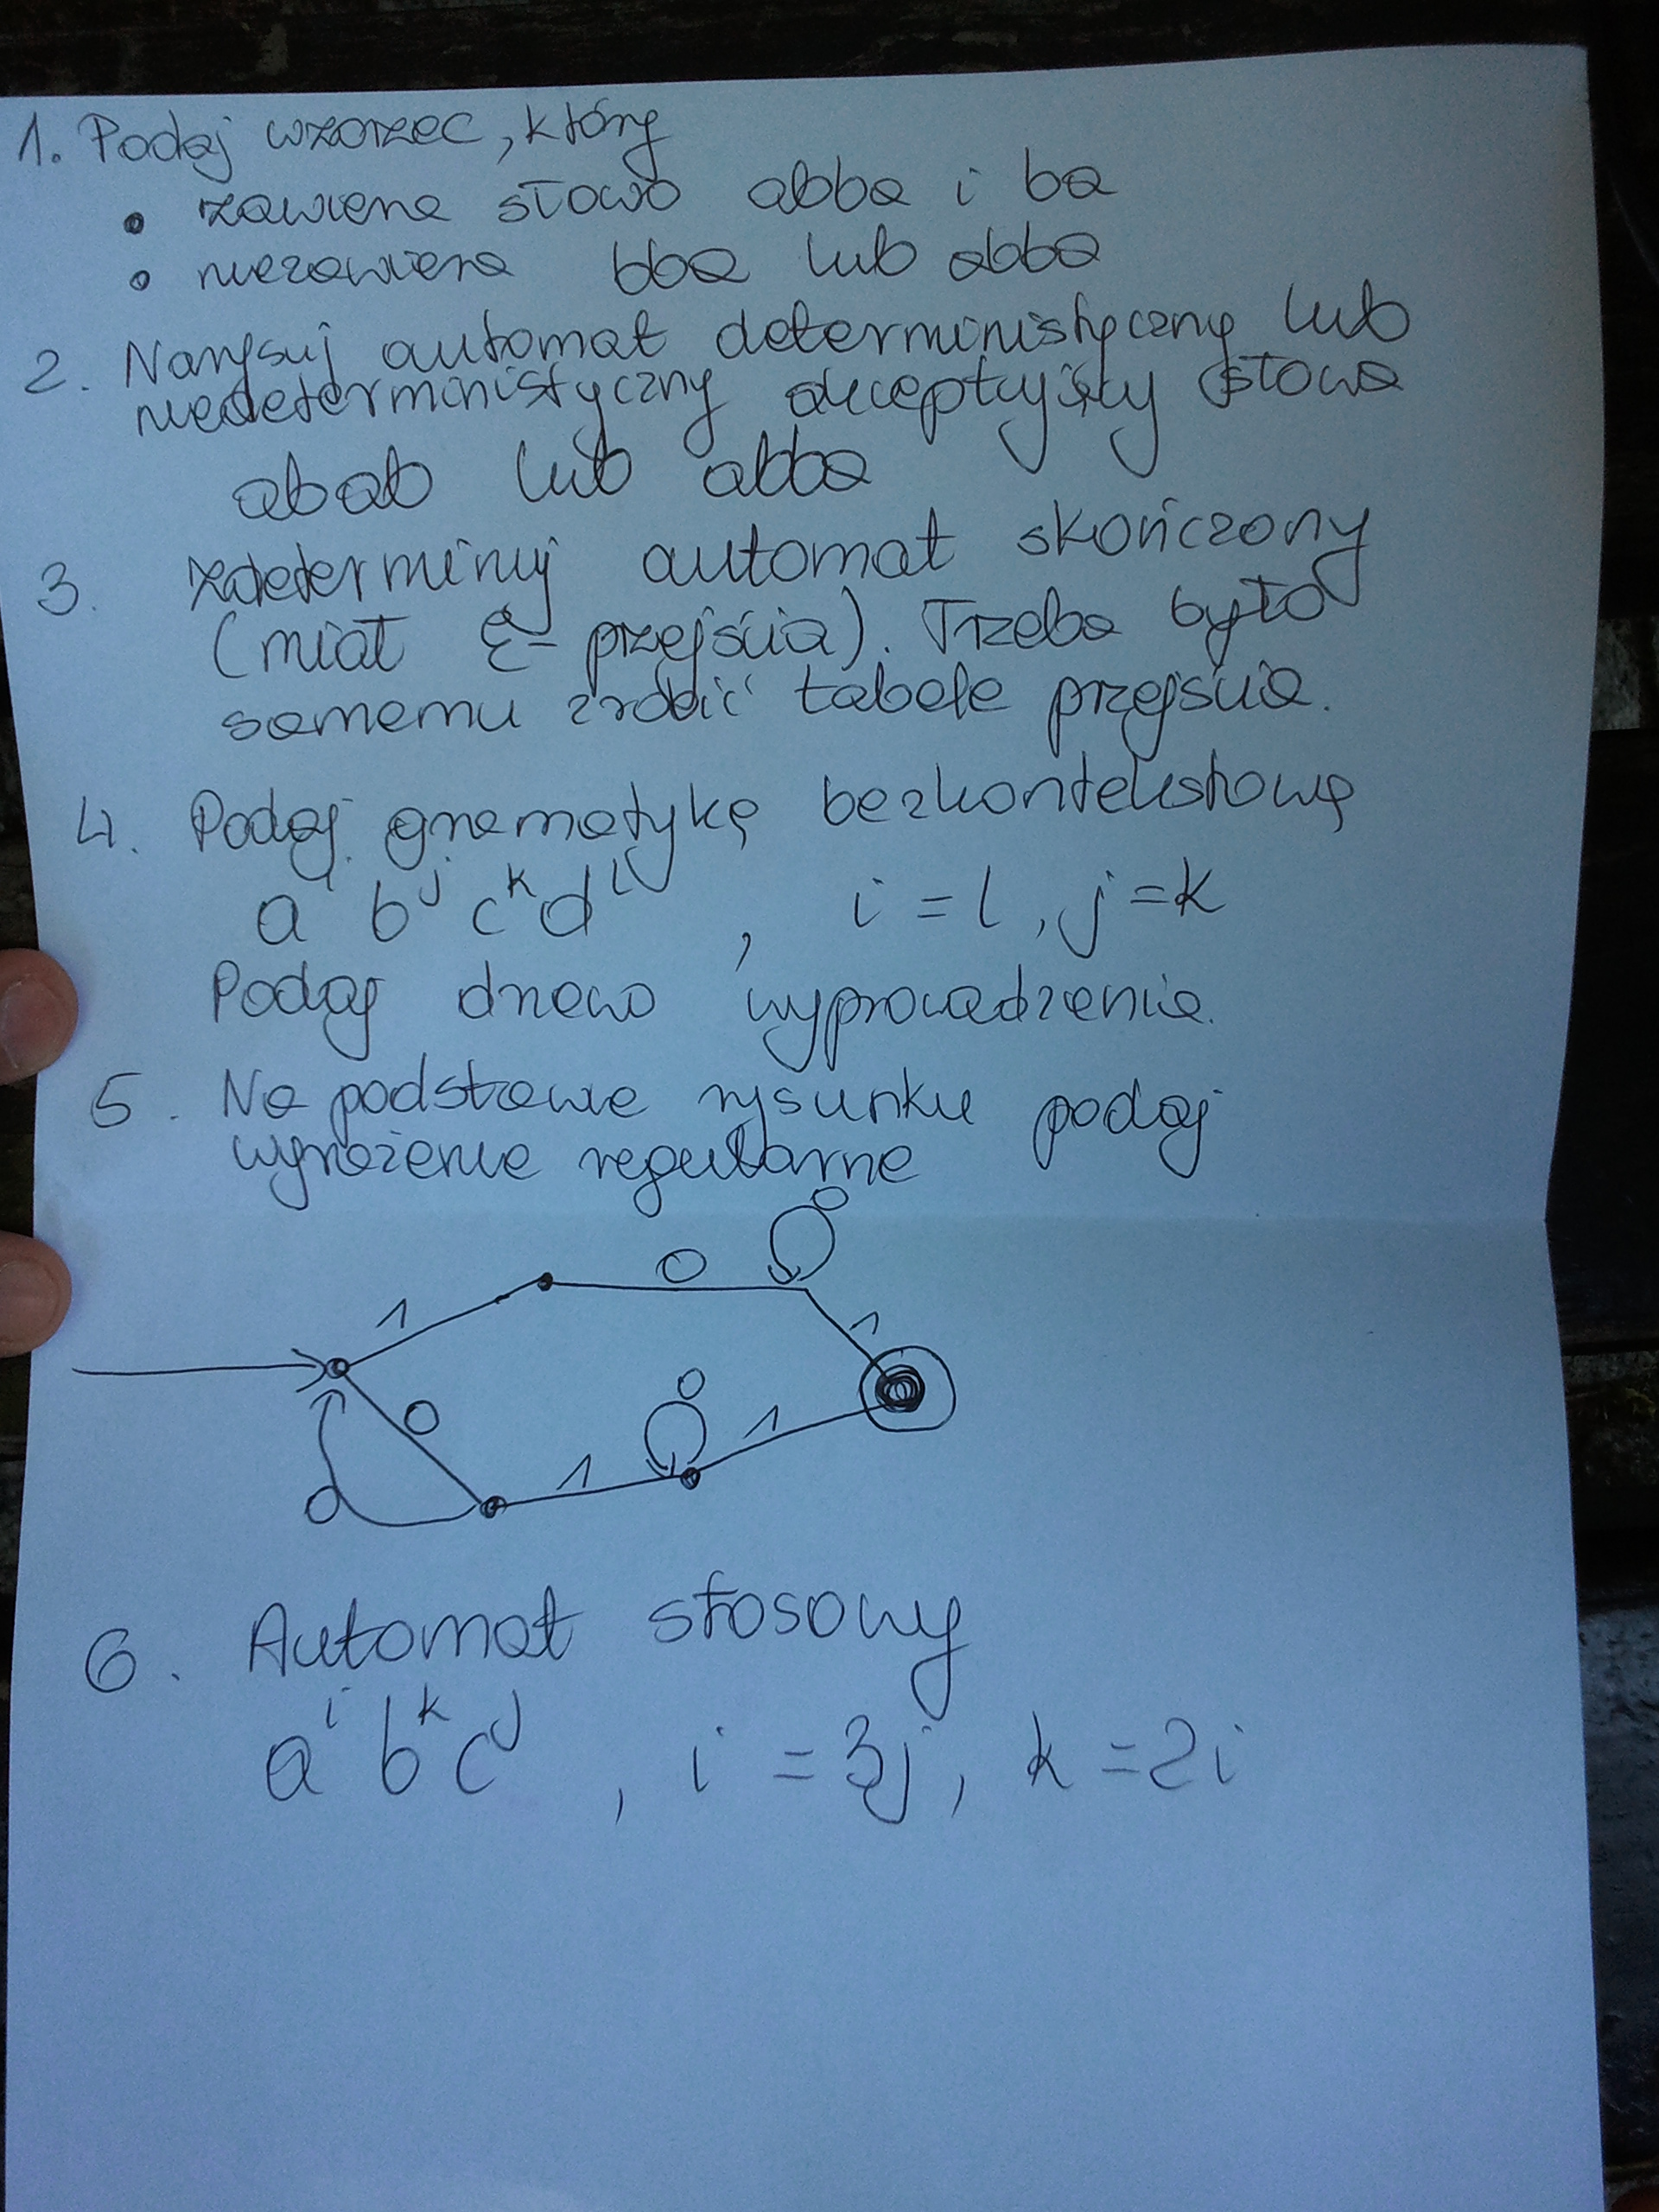 1. Podaj wzorzec, który
• zawiera słowo abba i ba
• niezawiera bba lub abba
2. Narysuj automat deterministyczny lub
niedeterministyczny akceptujący słowa
abab lub abba
3. Zdeterminuj automat skończony
(miał ε-przejścia). Trzeba było
samemu zrobić tabele przejścia.
4. Podaj gramatykę bezkontekstową
a^i b^j c^k d^l , i = l, j = k
Podaj drzewo wyprowadzenia.
5. Na podstawie rysunku podaj
wyrażenie regularne
0
0
1
1
0
0
1
1
d
6. Automat stosowy
a^i b^k c^j , i = 3j, k = 2i